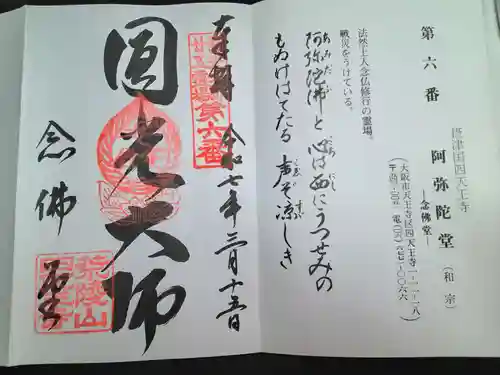 第六番
摂津国四天王寺
阿弥陀堂
―念佛堂―
(和宗)
大阪市天王寺区四天王寺一-一一-一八
法然上人念仏修行の霊場。
戦災をうけている。
阿弥陀佛と
あみだぶ
心は西にうつせみの
もぬけはてたる
声ぞ涼しき
こゑ
すゞ
奉拝
令和七年三月十五日
廿五霊場第六番
圓光大師
念佛堂
荒陵山